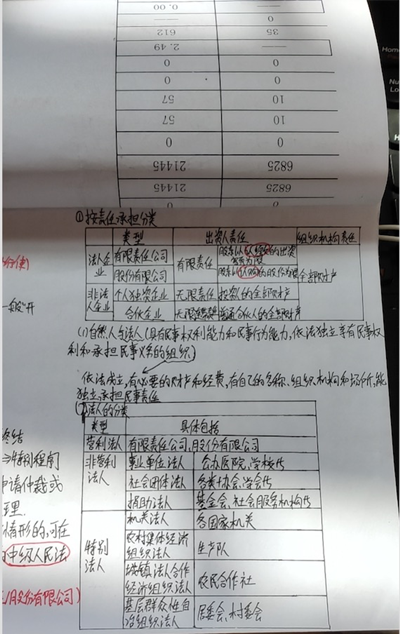 0.00
612
35
2.49
0
0
57
10
57
10
0
0
21445
6825
21445
6825
0
0
①按责任承担分类
类型 出资人责任 组织机构责任
法人企业 有限责任公司 有限责任
股份有限公司 全部财产
非法人企业 个人独资企业 无限责任
合伙企业
(1)自然人与法人(具有民事权利能力和民事行为能力,依法独立享有民事权
利和承担民事义务的组织)
依法成立,有必要的财产和经费,有自己的名称、组织机构和场所,能
独立承担民事责任
法人的分类
类型 具体包括
营利法人 有限责任公司,股份有限公司
非营利法人 事业单位法人 公办医院,学校等
社会团体法人 各类协会,学会等
捐助法人 基金会,社会服务机构等
特别法人 机关法人 各国家机关
农村集体经济组织法人 生产队
城镇、法人合作经济组织法人 农民合作社
基层群众性自治组织法人 居委会,村委会
终结
申请仲裁或
情形的,可在
中级人民法
股份有限公司)